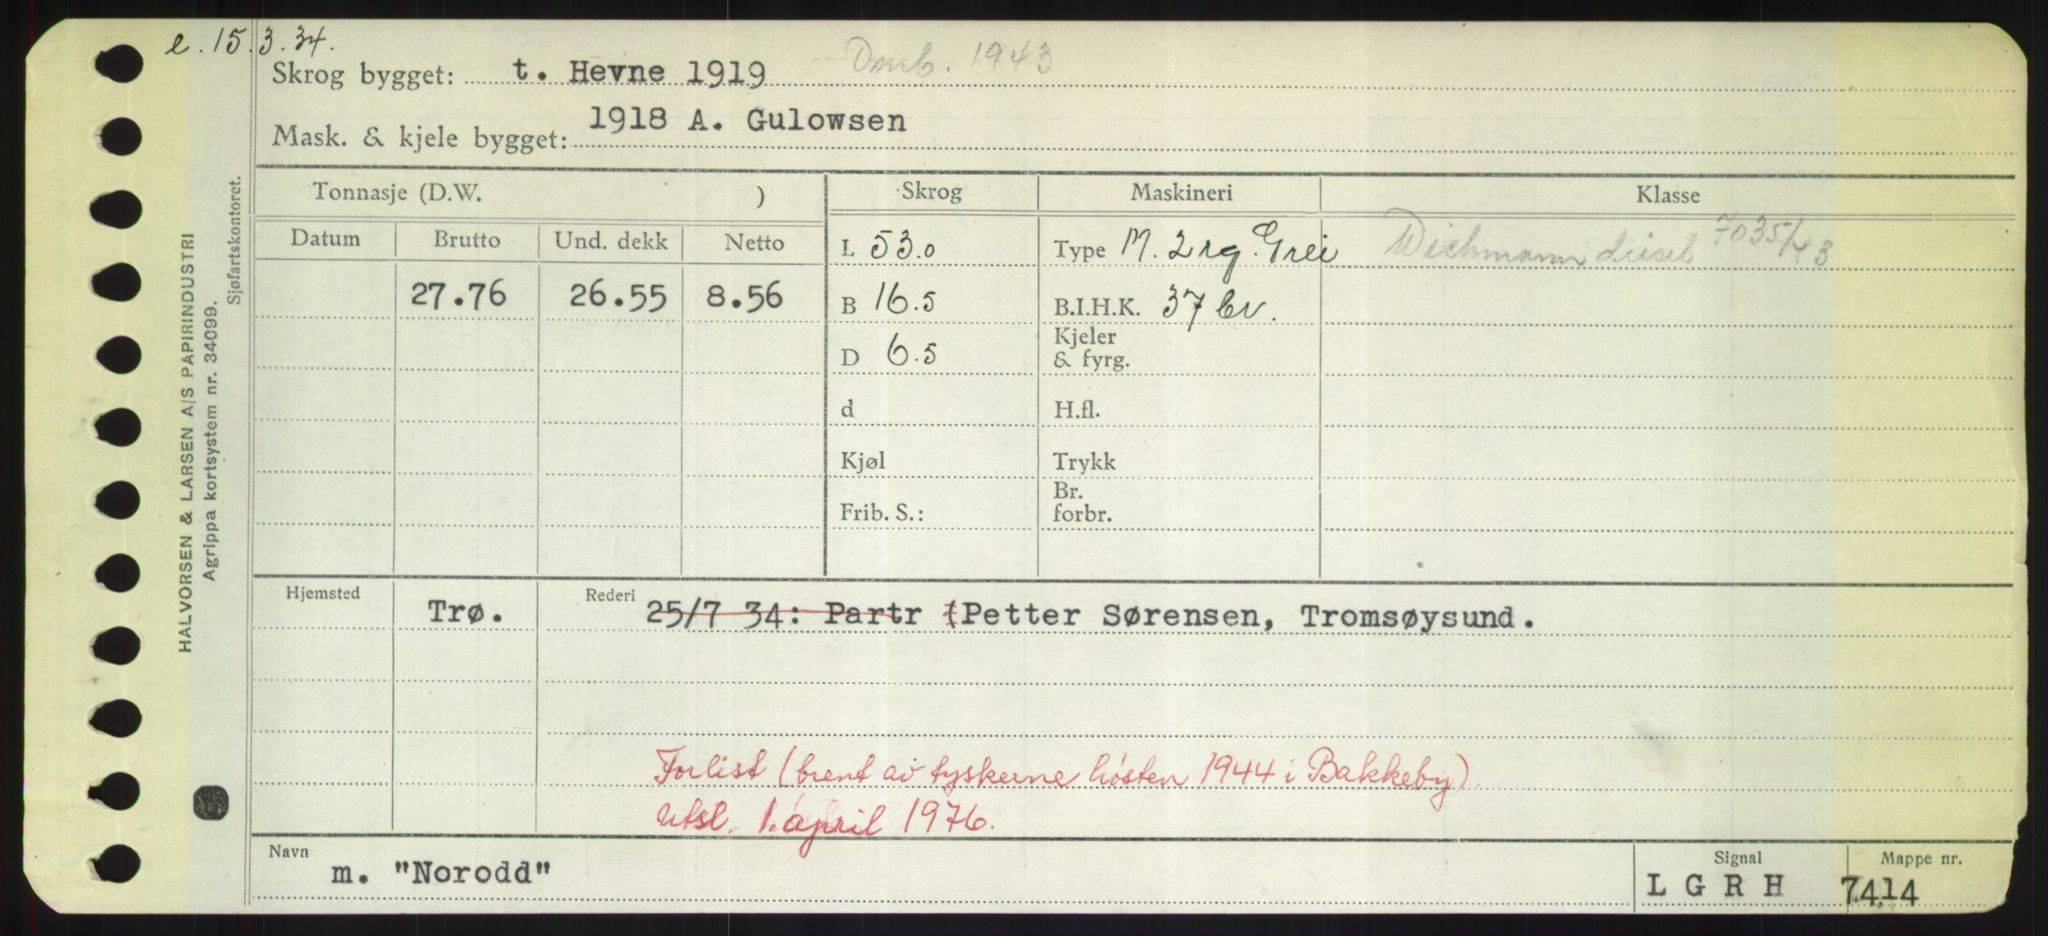 e. 15.3.34.
Skrog bygget: t. Hevne 1919 Omb. 1943
Mask. & kjele bygget: 1918 A. Gulowsen
Tonnasje (D.W. ) Skrog Maskineri Klasse
Datum Brutto Und. dekk Netto L 53.0 Type M. 2 rg. Grei Wichmann diesel 7035/43
27.76 26.55 8.56 B 16.5 B.I.H.K. 37 bv.
D 6.5 Kjeler & fyrg.
d H.fl.
Kjøl Trykk
Frib. S.: Br. forbr.
Hjemsted Trø. Rederi 25/7 34: Partr (Petter Sørensen, Tromsøysund.
Forlist (brent av tyskerne høsten 1944 i Bakkeby)
Utsl. 1. april 1976.
Navn m. "Norodd" Signal L G R H Mappe nr. 7414
HALVORSEN & LARSEN A/S PAPIRINDUSTRI
Agrippa kortsystem nr. 34099.
Sjøfartskontoret.